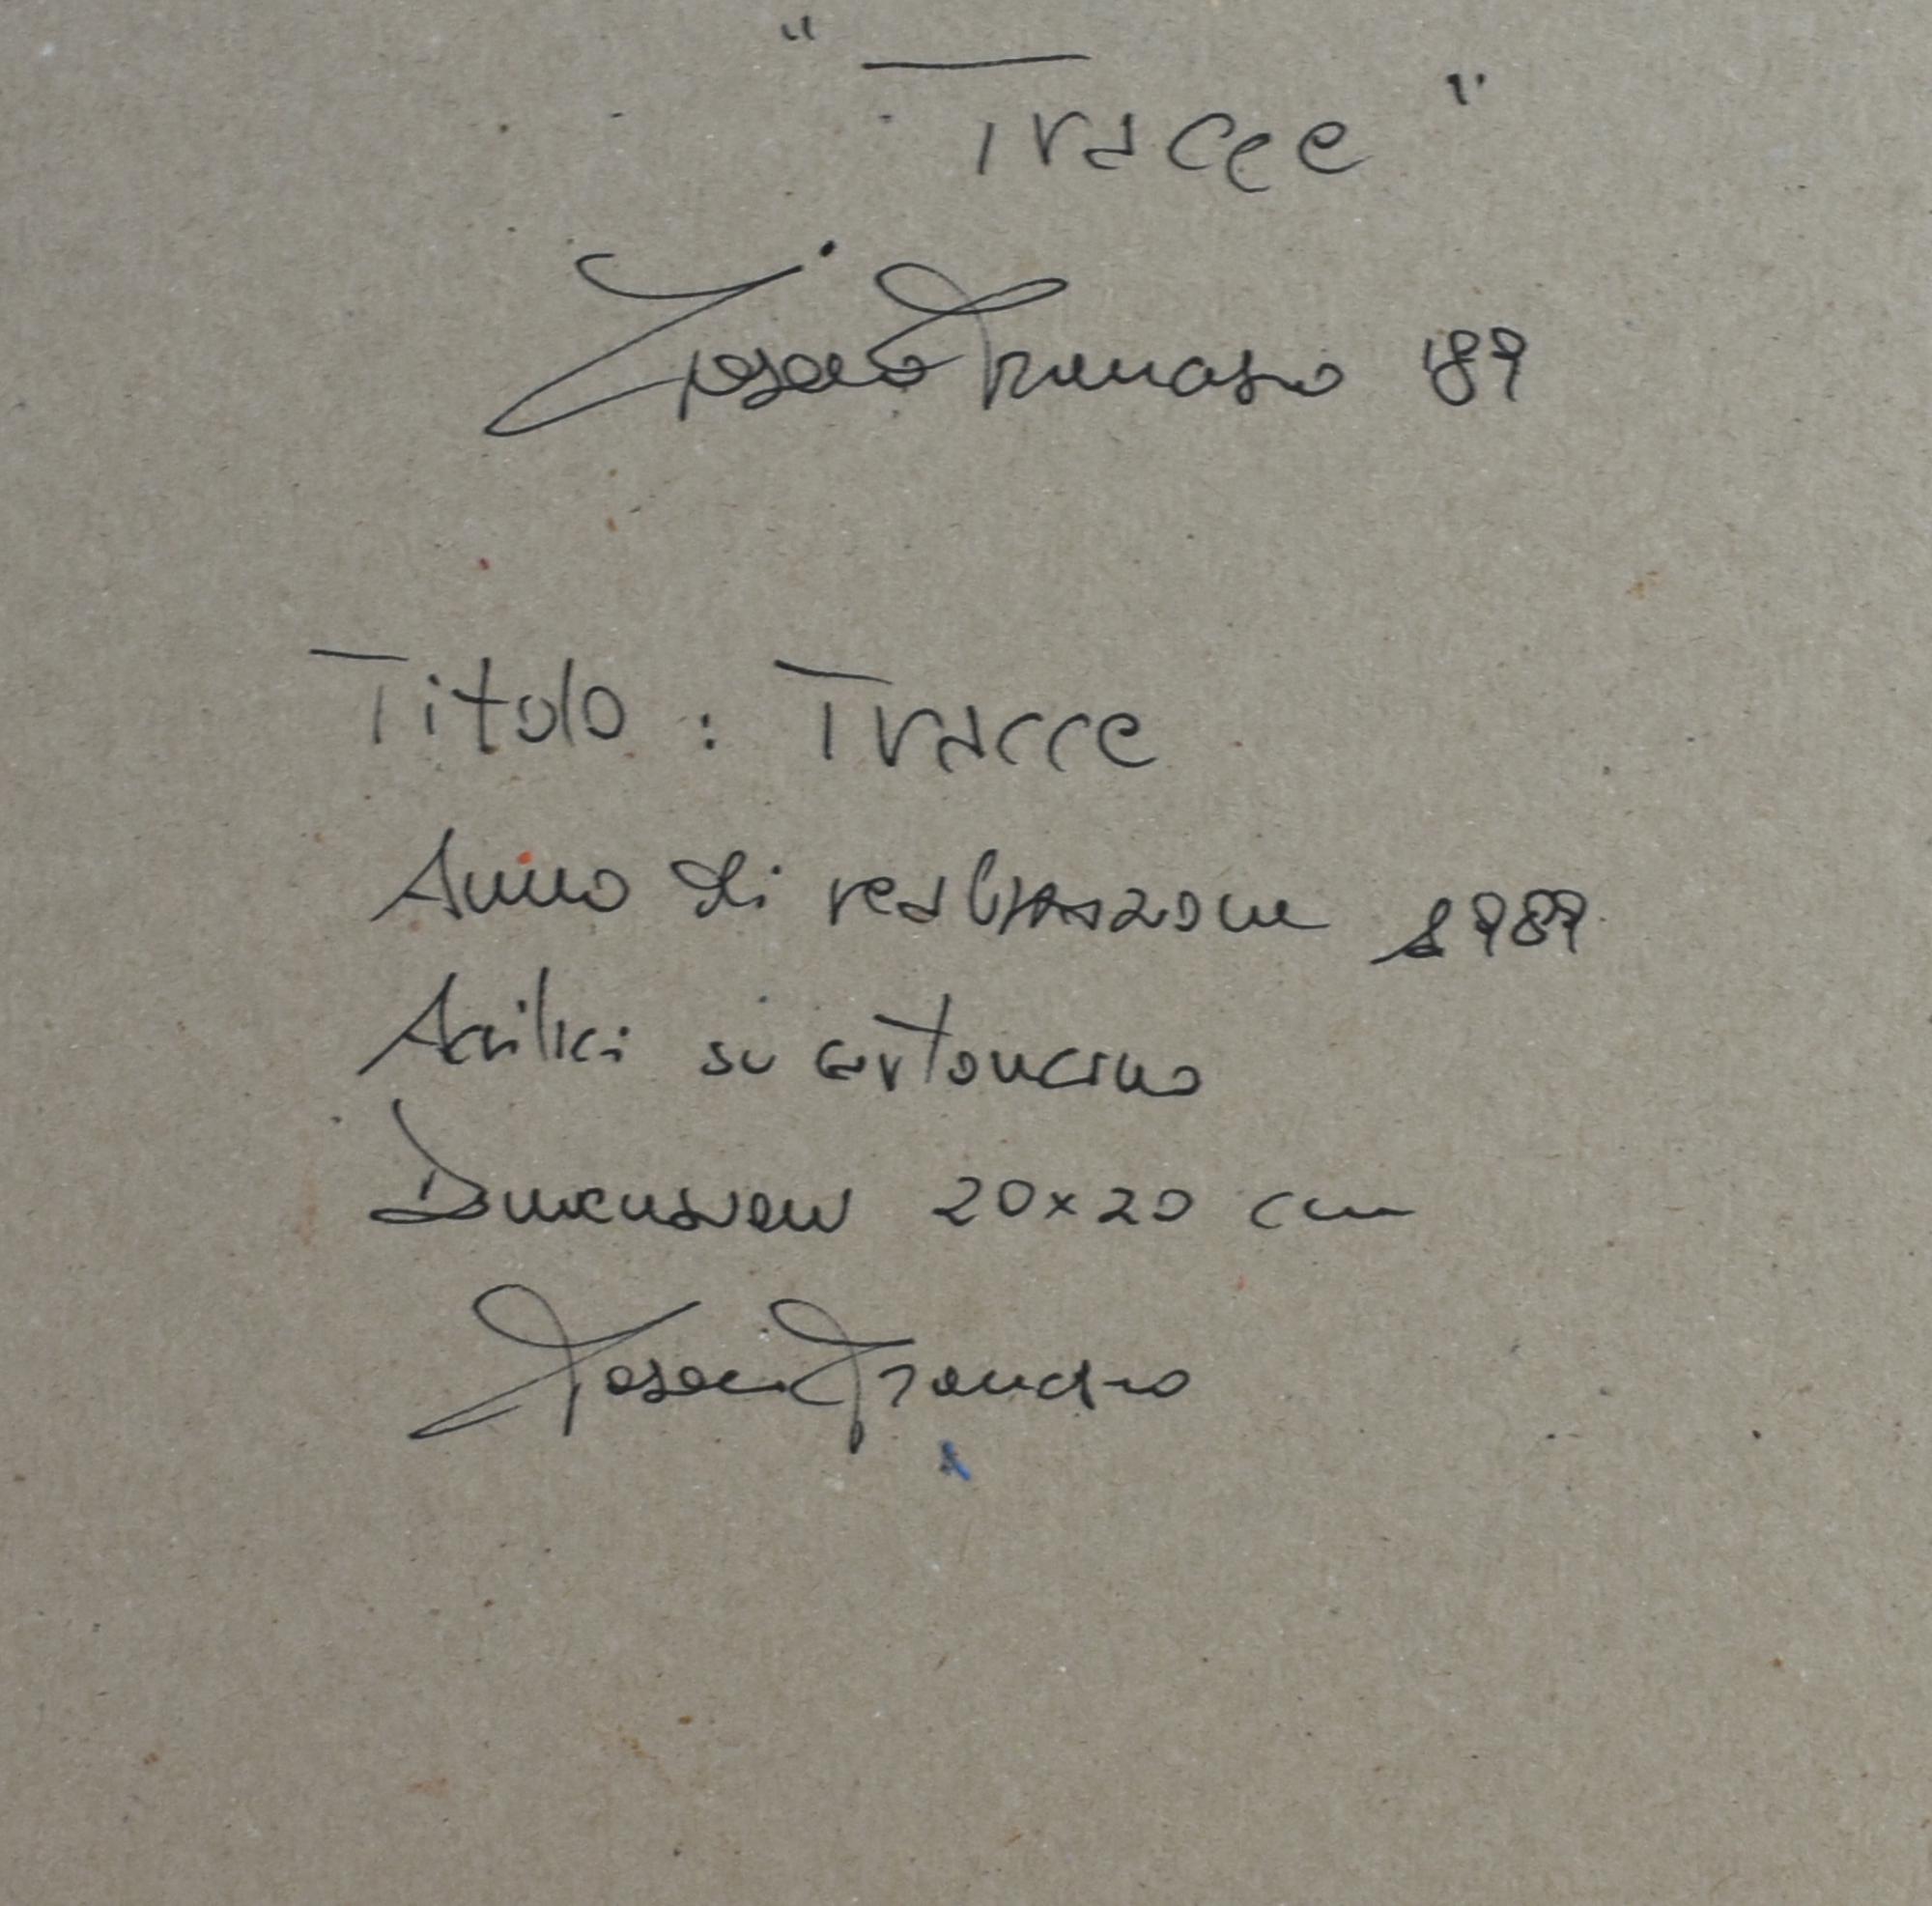 "Tracce"
Tommaso '89
Titolo : Tracce
Anno di realizzazione 1989
Acrilici su cartoncino
Dimensioni 20x20 cm